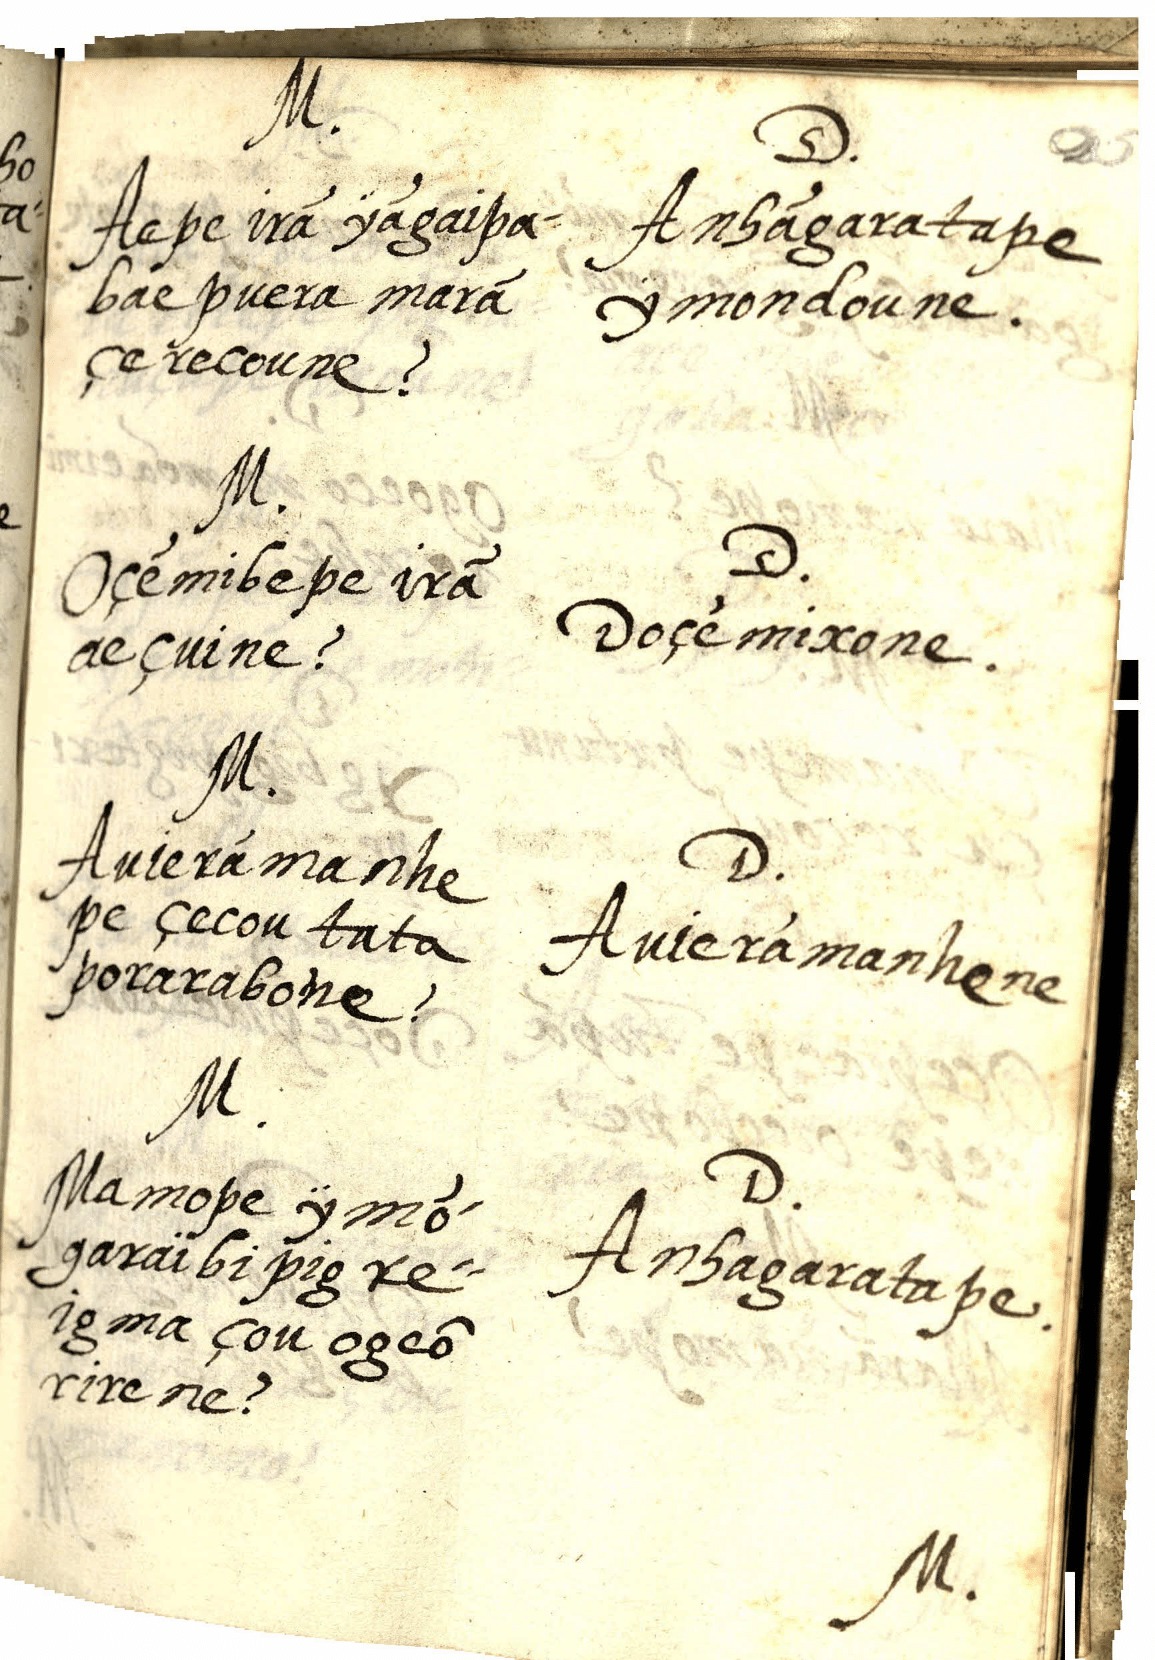 M.
Aepe irã ÿágaipa-
bae puera marã
çerecoune?
D.
Anhãgaratape
ÿmondoune.
M.
Oçémibepe irã
aeçuine?
D.
Doçémixone.
M.
Auierámanhe
pe çecou tata
porarabone?
D.
Auierámanhene
M.
Mamope ÿmó-
garaïbipigre-
igma çou ogeõ
rirene?
D.
Anhagaratape.
M.